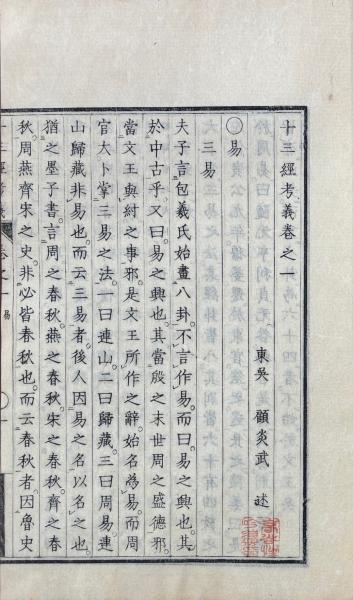 十三經考義卷之一
東吳 顧炎武 述
○易
三易
夫子言包羲氏始畫八卦不言作易而曰易之興也其
於中古乎又曰易之興也其當殷之末世周之盛德邪
當文王與紂之事邪是文王所作之辭始名為易而周
官大卜掌三易之法一曰連山二曰歸藏三曰周易連
山歸藏非易也而云三易者後人因易之名以名之也
猶之墨子書言周之春秋燕之春秋宋之春秋齊之春
秋周燕齊宋之史非必皆春秋也而云春秋者因魯史
十三經考義 卷之一 易